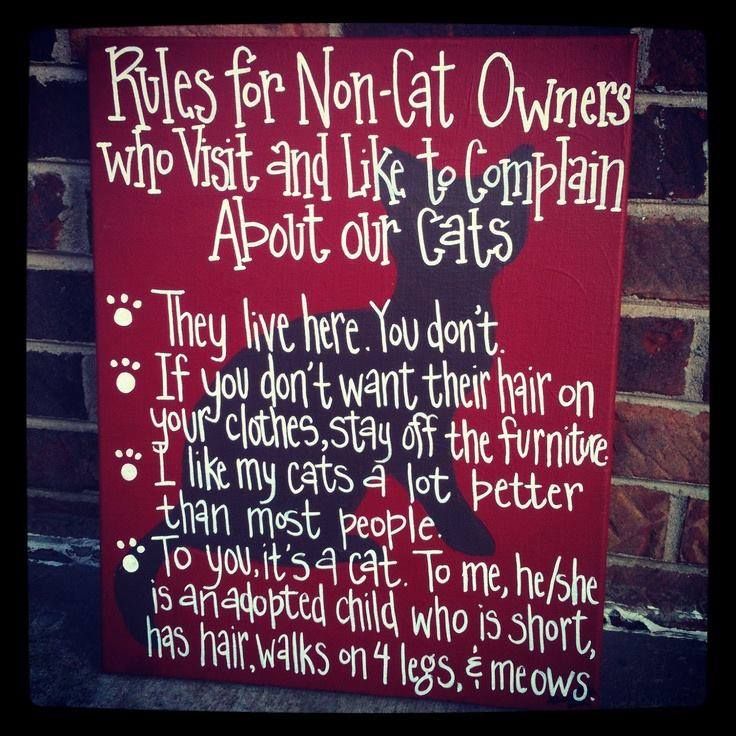 Rules for Non-Cat Owners
who Visit and Like to Complain
About our Cats
They live here. You don't.
If you don't want their hair on
your clothes, stay off the furniture.
I like my cats a lot better
than most people.
To you, it's a cat. To me, he/she
is an adopted child who is short,
has hair, walks on 4 legs, & meows.